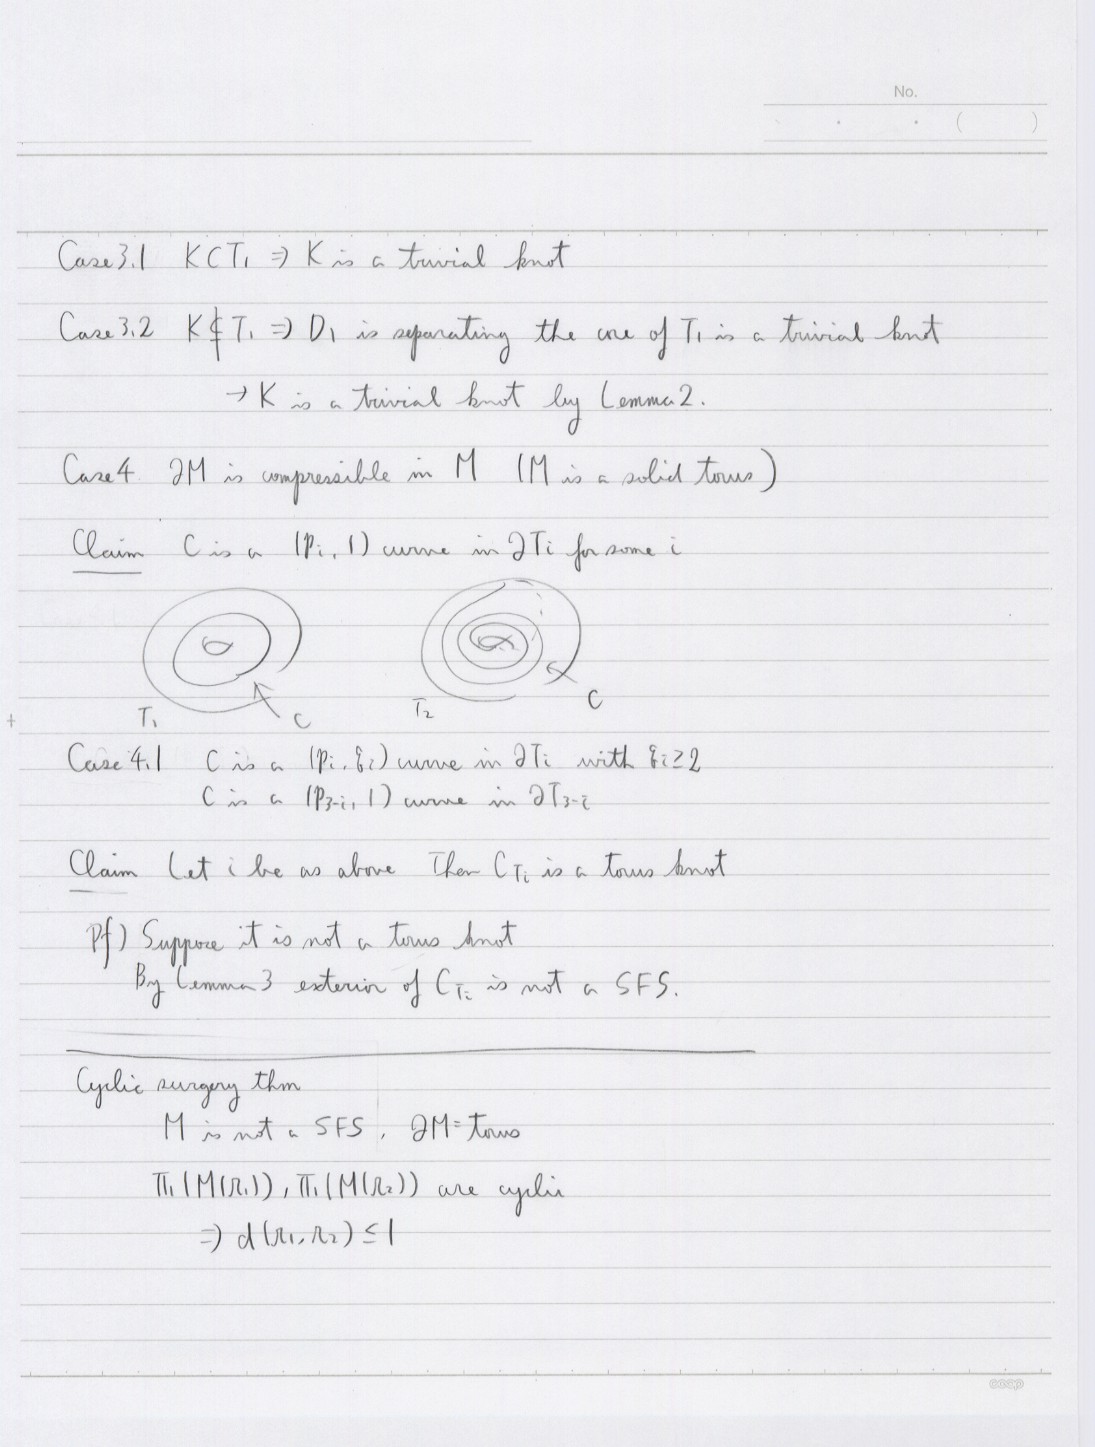 No.
· · · ( )
Case 3.1 K ⊂ T₁ ⇒ K is a trivial knot
Case 3.2 K ⊄ T₁ ⇒ D₁ is separating the core of T₁ is a trivial knot
→ K is a trivial knot by Lemma 2.
Case 4. ∂M is compressible in M (M is a solid torus)
Claim C is a (pᵢ, 1) curve in ∂Tᵢ for some i
T₁ C T₂ C
Case 4.1 C is a (pᵢ, qᵢ) curve in ∂Tᵢ with qᵢ ≥ 2
C is a (p₃₋ᵢ, 1) curve in ∂T₃₋ᵢ
Claim Let i be as above Then C_Tᵢ is a torus knot
Pf) Suppose it is not a torus knot
By Lemma 3 exterior of C_Tᵢ is not a SFS.
Cyclic surgery thm
M is not a SFS, ∂M = torus
π₁(M(r₁)), π₁(M(r₂)) are cyclic
⇒ d(r₁, r₂) ≤ 1